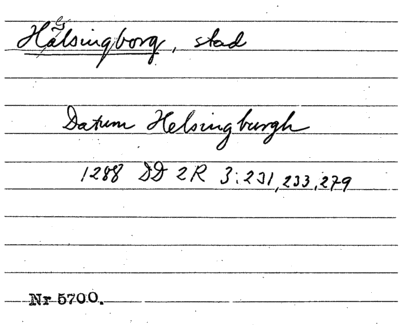 Hälsingborg, stad
Datum Helsingburgh
1288 DD 2R 3:231, 233, 279
Nr 5700.